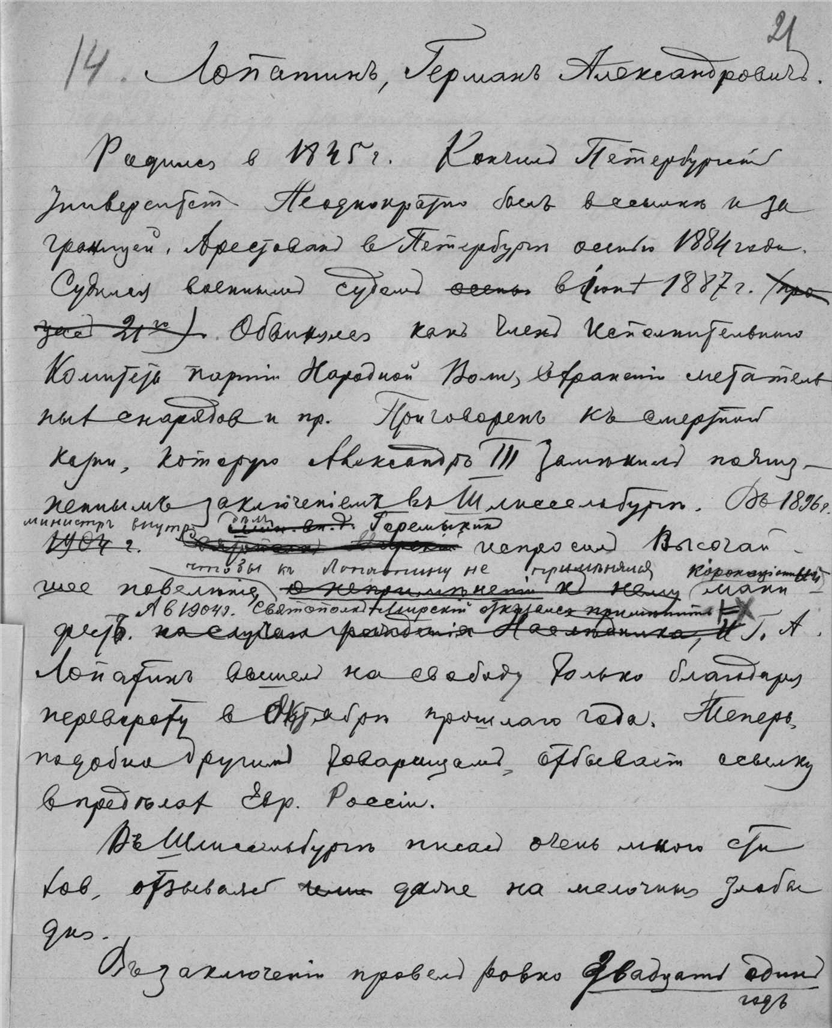 21
14. Лопатинъ, Германъ Александровичъ.
Родился в 1845 г. Кончилъ Петербургскій
Университетъ Неоднократно былъ в ссылкѣ и за
границей. Арестованъ в Петербургѣ осенью 1884 года.
Судился военнымъ судомъ осенью в Іюнѣ 1887 г.
21го). Обвинялся какъ Членъ Исполнительнаго
Комитета партіи Народной Воли, храненіи метатель
ныхъ снарядов и пр. Приговоренъ къ смертной
казни, которую Александръ III замѣнилъ пожиз-
неннымъ заключеніемъ въ Шлиссельбургѣ. Въ 1896 г.
министръ внутр. дѣлъ Горемыкинъ
1904 г. испросилъ Высочай-
чтобы къ Лопатину не примѣнялся Коронаціонный
шее повелѣніе о непримѣненіи к нему мани-
А в 1904 г. Святополк-Мирскій отказался примѣнить
фестъ. на случай рожденія Наслѣдника, и Г. А.
Лопатинъ вышелъ на свободу только благодаря
перевороту в Октябрѣ прошлаго года. Теперь,
подобно другимъ товарищамъ, отбываетъ ссылку
в предѣлахъ Евр. Россіи.
Въ Шлиссельбургѣ писалъ очень много сти
ховъ, отзываясь даже на мелочныя злобы
дня.
Въ заключеніи провелъ ровно двадцать одинъ
годъ